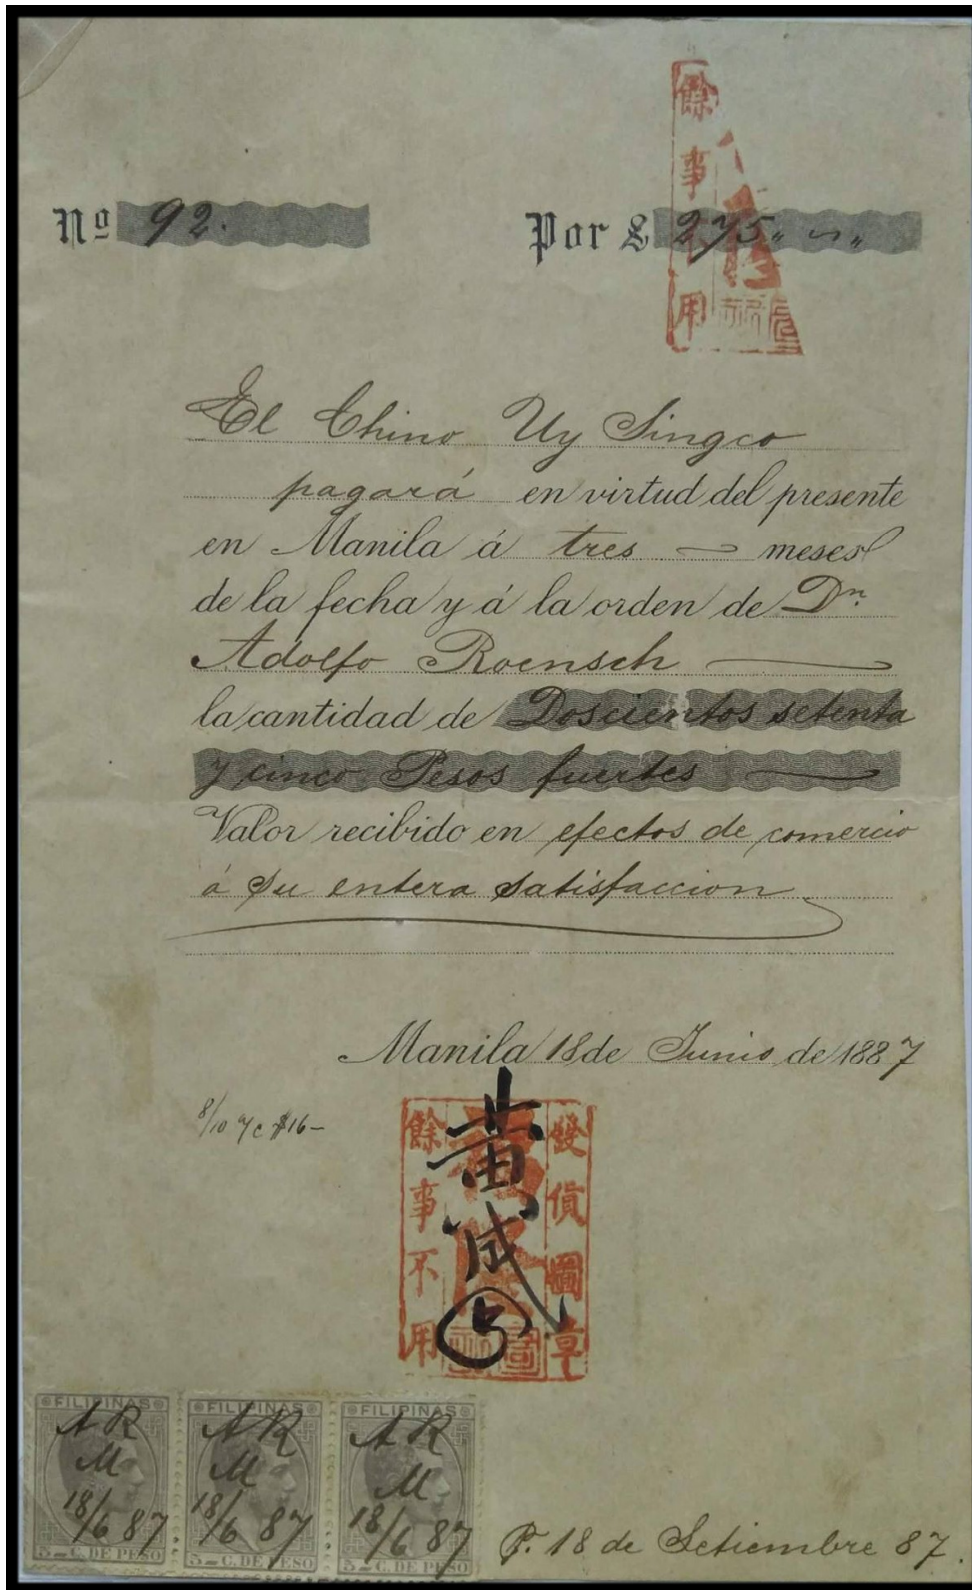 Nº 92.
Por $ 275,, ~,,
餘事用
El Chino Uy Singco
pagará en virtud del presente
en Manila á tres meses
de la fecha y á la orden de Dn.
Adolfo Roensch
la cantidad de Doscientos setenta
y cinco Pesos fuertes
Valor recibido en efectos de comercio
á su entera satisfaccion
Manila 18 de Junio de 1887
8/10 % $16-
發貨圖章
黃成
餘事不用
FILIPINAS FILIPINAS FILIPINAS
AR AR AR
M M M
18/6 87 18/6 87 18/6 87
5 C. DE PESO 5 C. DE PESO 5 C. DE PESO
P. 18 de Setiembre 87.